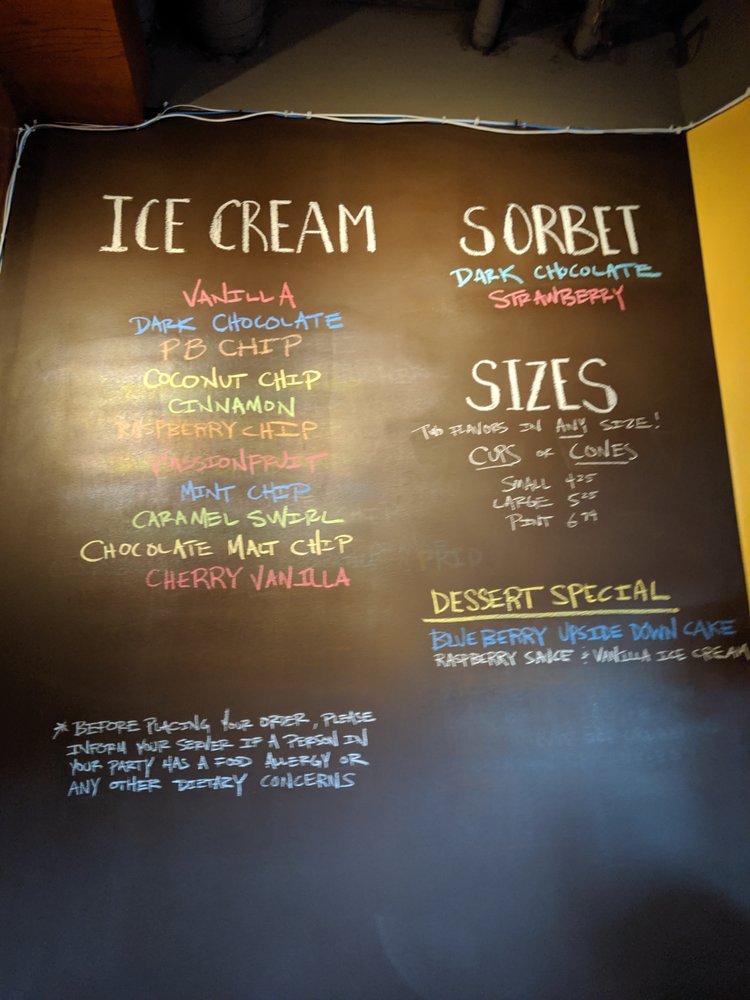 ICE CREAM
VANILLA
DARK CHOCOLATE
PB CHIP
COCONUT CHIP
CINNAMON
RASPBERRY CHIP
PASSIONFRUIT
MINT CHIP
CARAMEL SWIRL
CHOCOLATE MALT CHIP
CHERRY VANILLA
* BEFORE PLACING YOUR ORDER, PLEASE
INFORM YOUR SERVER IF A PERSON IN
YOUR PARTY HAS A FOOD ALLERGY OR
ANY OTHER DIETARY CONCERNS
SORBET
DARK CHOCOLATE
STRAWBERRY
SIZES
TWO FLAVORS IN ANY SIZE!
CUPS or CONES
SMALL 4.25
LARGE 5.25
PINT
DESSERT SPECIAL
BLUEBERRY UPSIDE DOWN CAKE
RASPBERRY SAUCE & VANILLA ICE CREAM